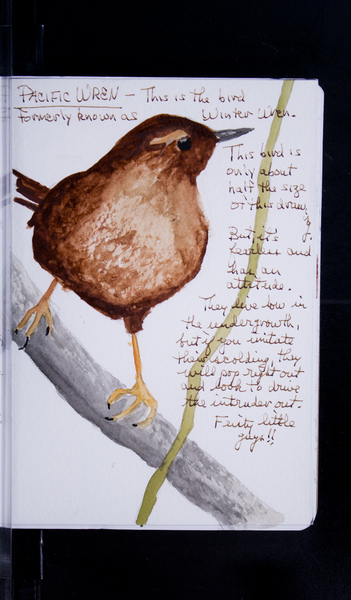 PACIFIC WREN – This is the bird
formerly known as Winter Wren.
This bird is
only about
half the size
of this drawing.
But it's
fearless and
has an
attitude.
They live low in
the undergrowth,
but if you imitate
their scolding, they
will pop right out
and look to drive
the intruder out.
Feisty little
guys!!